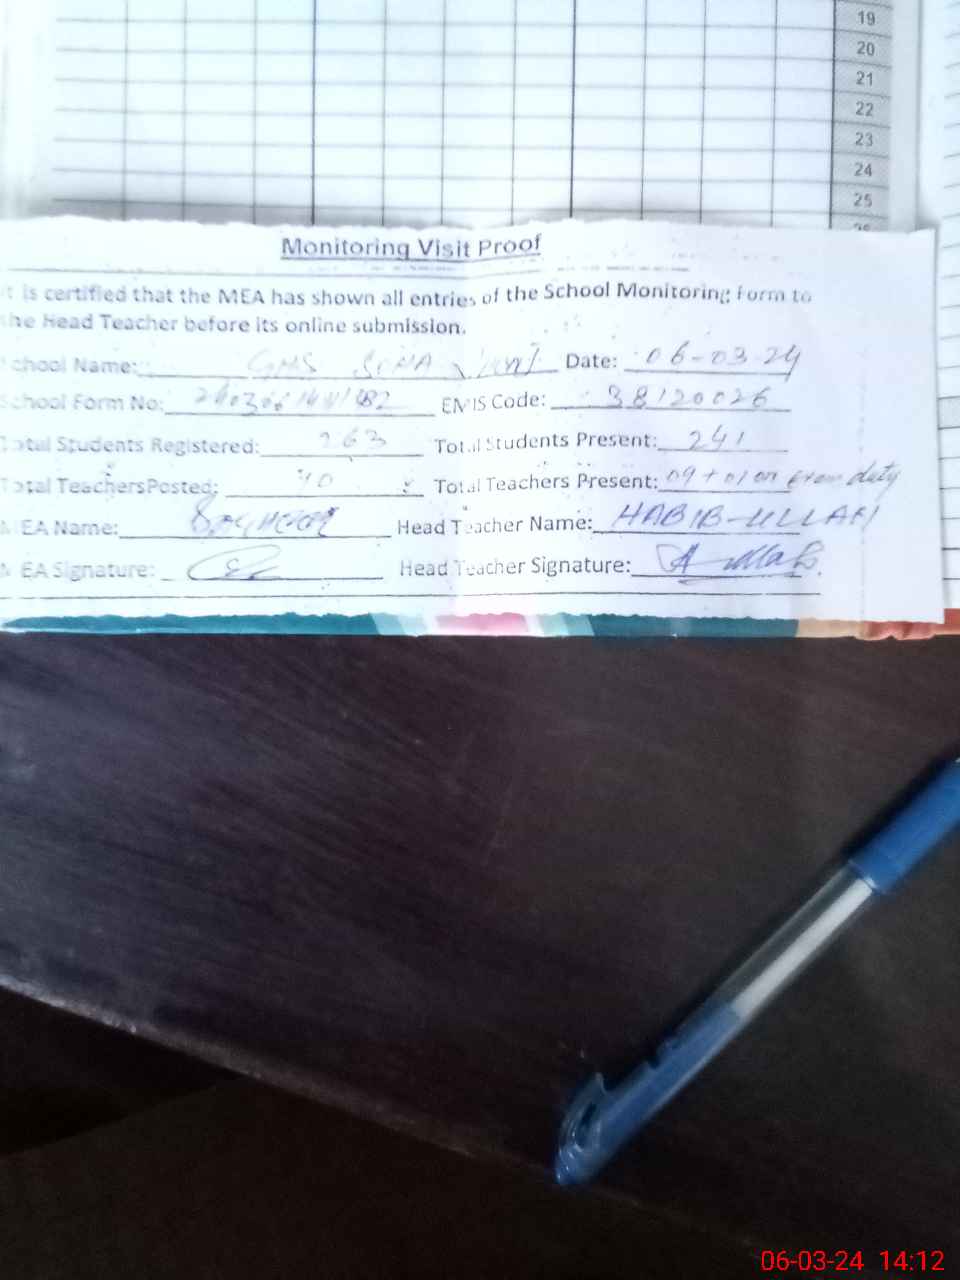 19
20
21
22
23
24
25
Monitoring Visit Proof
t is certified that the MEA has shown all entries of the School Monitoring Form to
he Head Teacher before its online submission.
chool Name: GMS Date: 06-03-24
School Form No: EMIS Code: 38120026
Total Students Registered: 263 Total Students Present: 241
Total TeachersPosted: 10 Total Teachers Present: 09 + 01 on Exam duty
MEA Name: Head Teacher Name: HABIB-ULLAH
MEA Signature: Head Teacher Signature:
06-03-24 14:12